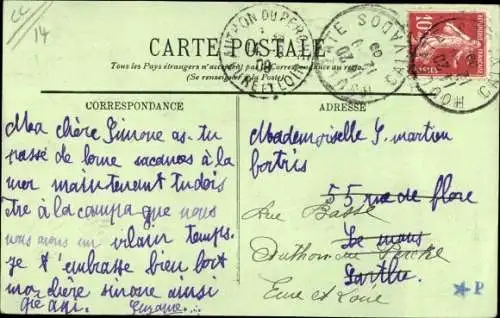 CC
14
CARTE POSTALE
Tous les Pays étrangers n'acceptent pas la Correspondance au recto.
(Se renseigner à la Poste)
CORRESPONDANCE
Ma chère Simone as-tu
passé de bonne vacances à la
mer maintenent tu dois
être à la campagne nous
nous avons un vilain temps.
Je t'embrasse bien fort
ma chère simone ainsi
Suzanne...
ADRESSE
Mademoiselle S. martien
55 rue de flore
Rue Basse
Le mans
Authon du Perche
Sarthe
Eure et Loire
HON DU PERCHE
09
EURE ET LOIR
CALVADOS
09
10
CALVADOS